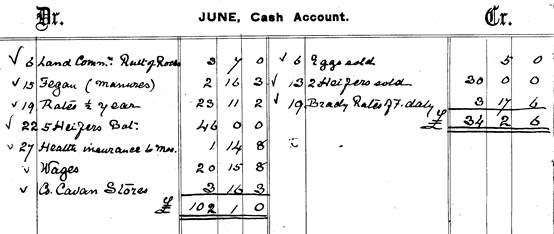 Dr. JUNE, Cash Account. Cr.
√ 6 Land Commn. 3 7 0 √ 6 Eggs sold 5 0
√ 15 Fegan (manures) 2 16 3 √ 13 2 Heifers sold 30 0 0
√ 19 Rates ½ year 23 11 2 √ 19 Brady Rates of F. daly 3 17 6
√ 22 5 Heifers Bat. 46 0 0 £ 34 2 6
√ 27 Health insurance 6 mos. 1 14 8
√ Wages 20 15 8
√ Co. Cavan Stores 3 16 3
£ 102 1 0